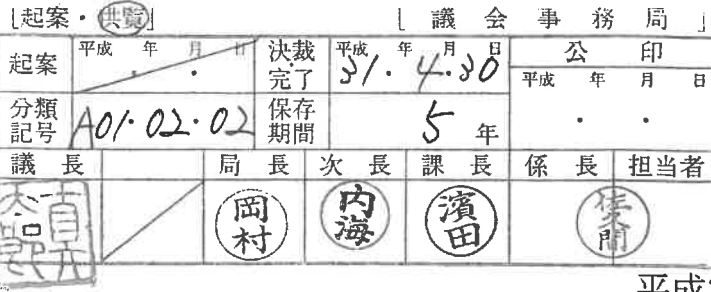 [起案・供覧] [議会事務局]
起案 平成 年 月 日 決裁完了 平成 年 月 日 31.4.30 公印
平成 年 月 日
分類記号 A01・02・02 保存期間 5年 ・ ・
議長 局長 次長 課長 係長 担当者
岡村 内海 濱田 佐久間
平成